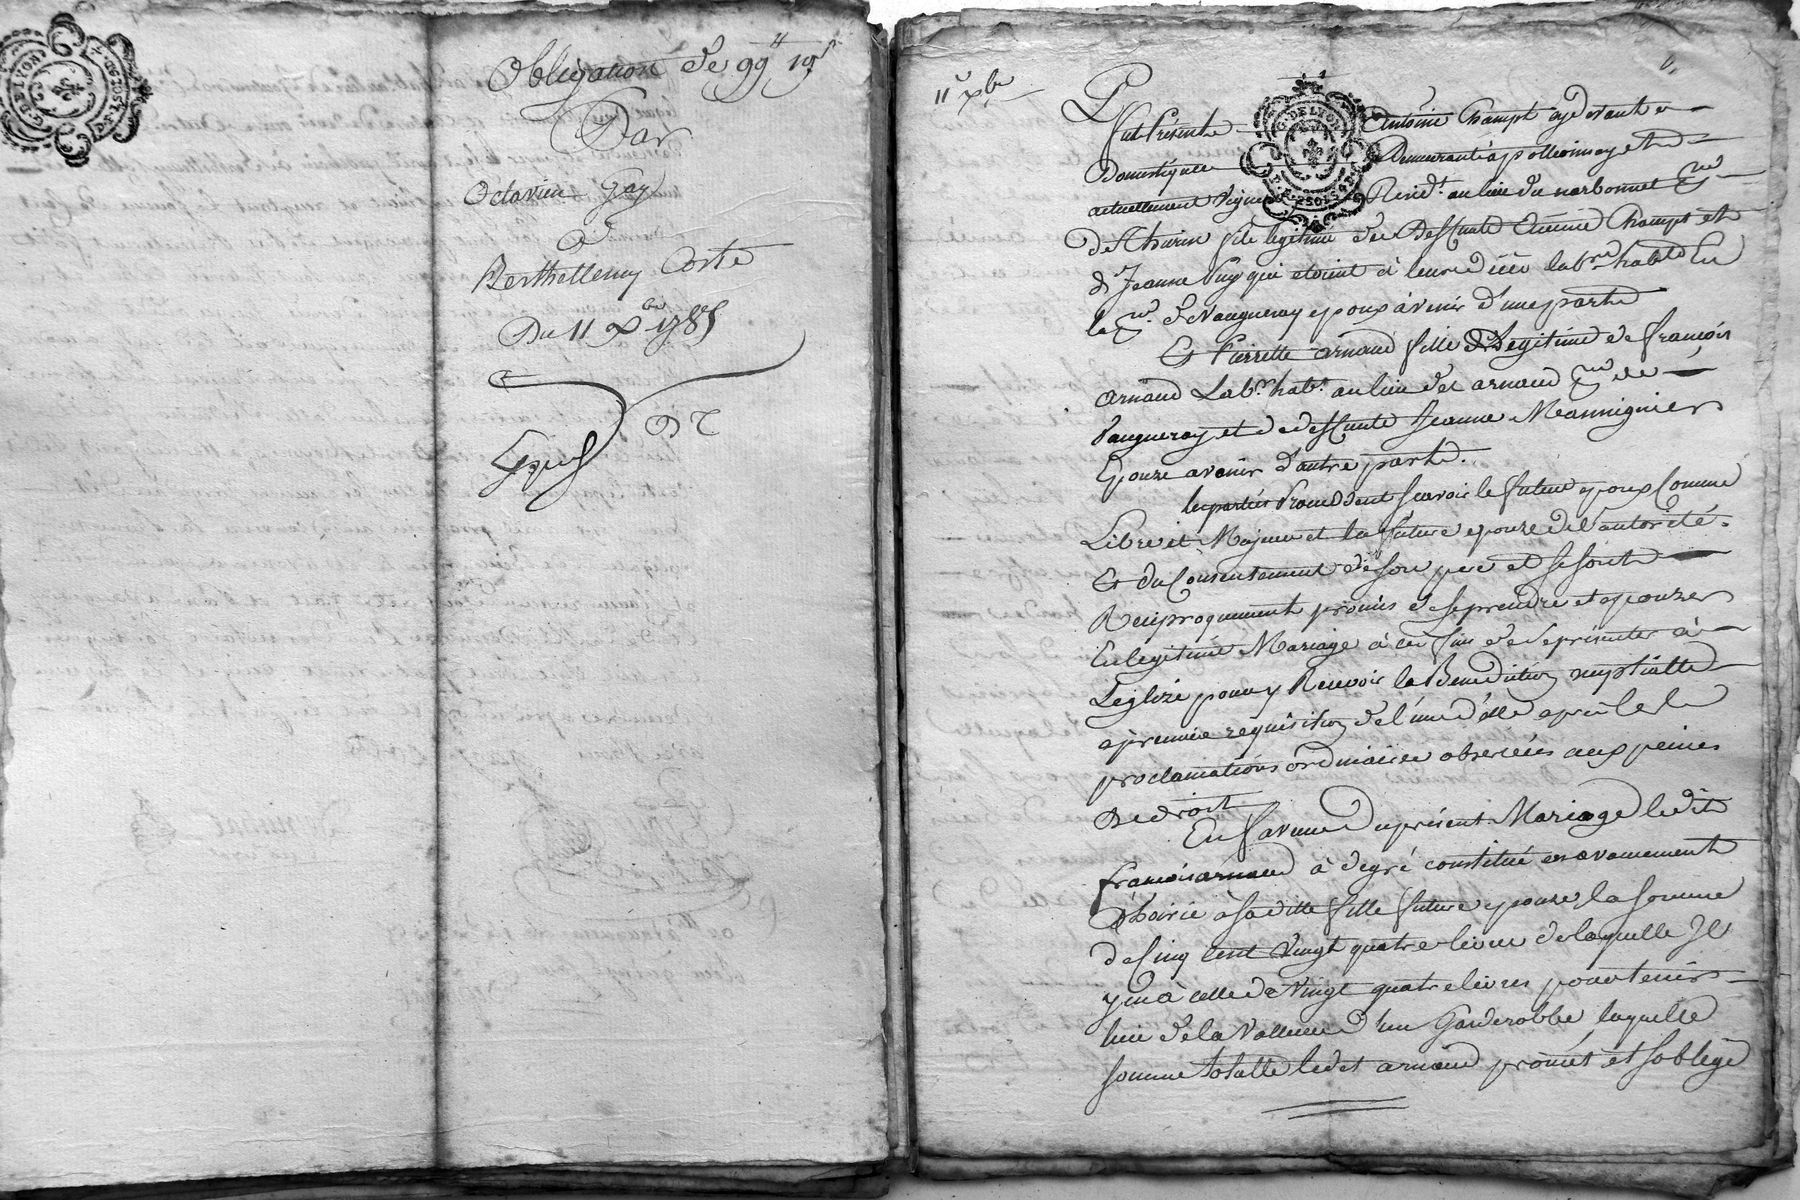 G. DE LYON
2 SOLS 4 D.
Obligation de 99# 19s
Par
Octavien Gay
A
Berthellemy Coste
Du 11 Xbre 1785
11e Xbre
G. DE LYON
2 SOLS 4 D.
Fut Présents Antoine Champt cy devant
Domestique Demeurant à pollionnay et
actuellement Vigneron Resid.t au lieu du narbonnet
de Thurin fils legitime de deffunts Etienne Champt et
d Jeanne Puy qui etoient à leurs décés lab.rs hab.ts En
la de Vaugneray epoux à venir d'une parte
Et Pierrette arnaud fille Legitime de françois
arnaud Lab.r hab.t au lieu det arnaud de
Vaugneray et de deffunte Jeanne Mannignier
Epouze avenir d'autre parte.
les parties Procedent scavoir le futur epoux Comme
Libre et Majeur et la future epouze de l'autorité
Et du Consentement de son pere et se sont
Reciproquement promis de se prendre et epouzer
En legitime Mariage à ces fins de se présenter à
L'eglize pour y Recevoir la Benediction nuptialle
a premiere requisition de l'une d'elle après les
proclamations ordinaires observées aux peines
De droit.
En faveur du présent Mariage ledit
françois arnaud à degré constitué en avancement
d'hoirie à sa ditte fille future epouze, la somme
de Cinq Cent Vingt quatre livres de laquelle Il
y en a celle de Vingt quatre livres pour tenir
lieu de la Valleur d'un Garderobbe laquelle
somme totalle ledet arnaud promet et soblege